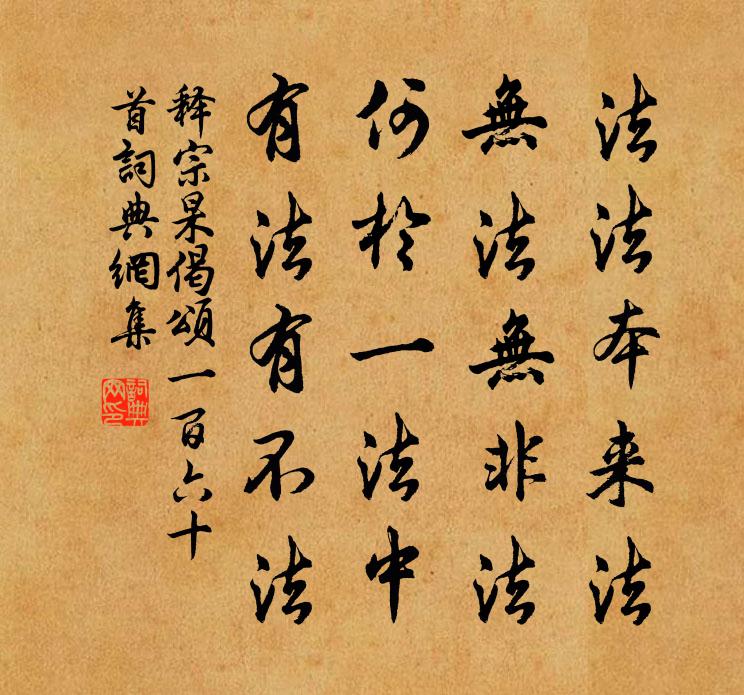 法法本来法
無法無非法
何於一法中
有法有不法
释宗杲偈頌一百六十
首詞典網集
詞典
网印